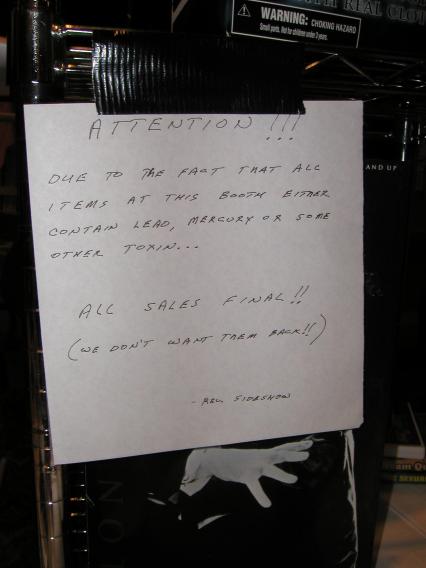 WITH REAL CLOT
WARNING: CHOKING HAZARD
Small parts. Not for children under 3 years.
ATTENTION!!!
AND UP
DUE TO THE FACT THAT ALL
ITEMS AT THIS BOOTH EITHER
CONTAIN LEAD, MERCURY OR SOME
OTHER TOXIN...
ALL SALES FINAL!!
(WE DON'T WANT THEM BACK!!)
- REV. SIDESHOW
ON